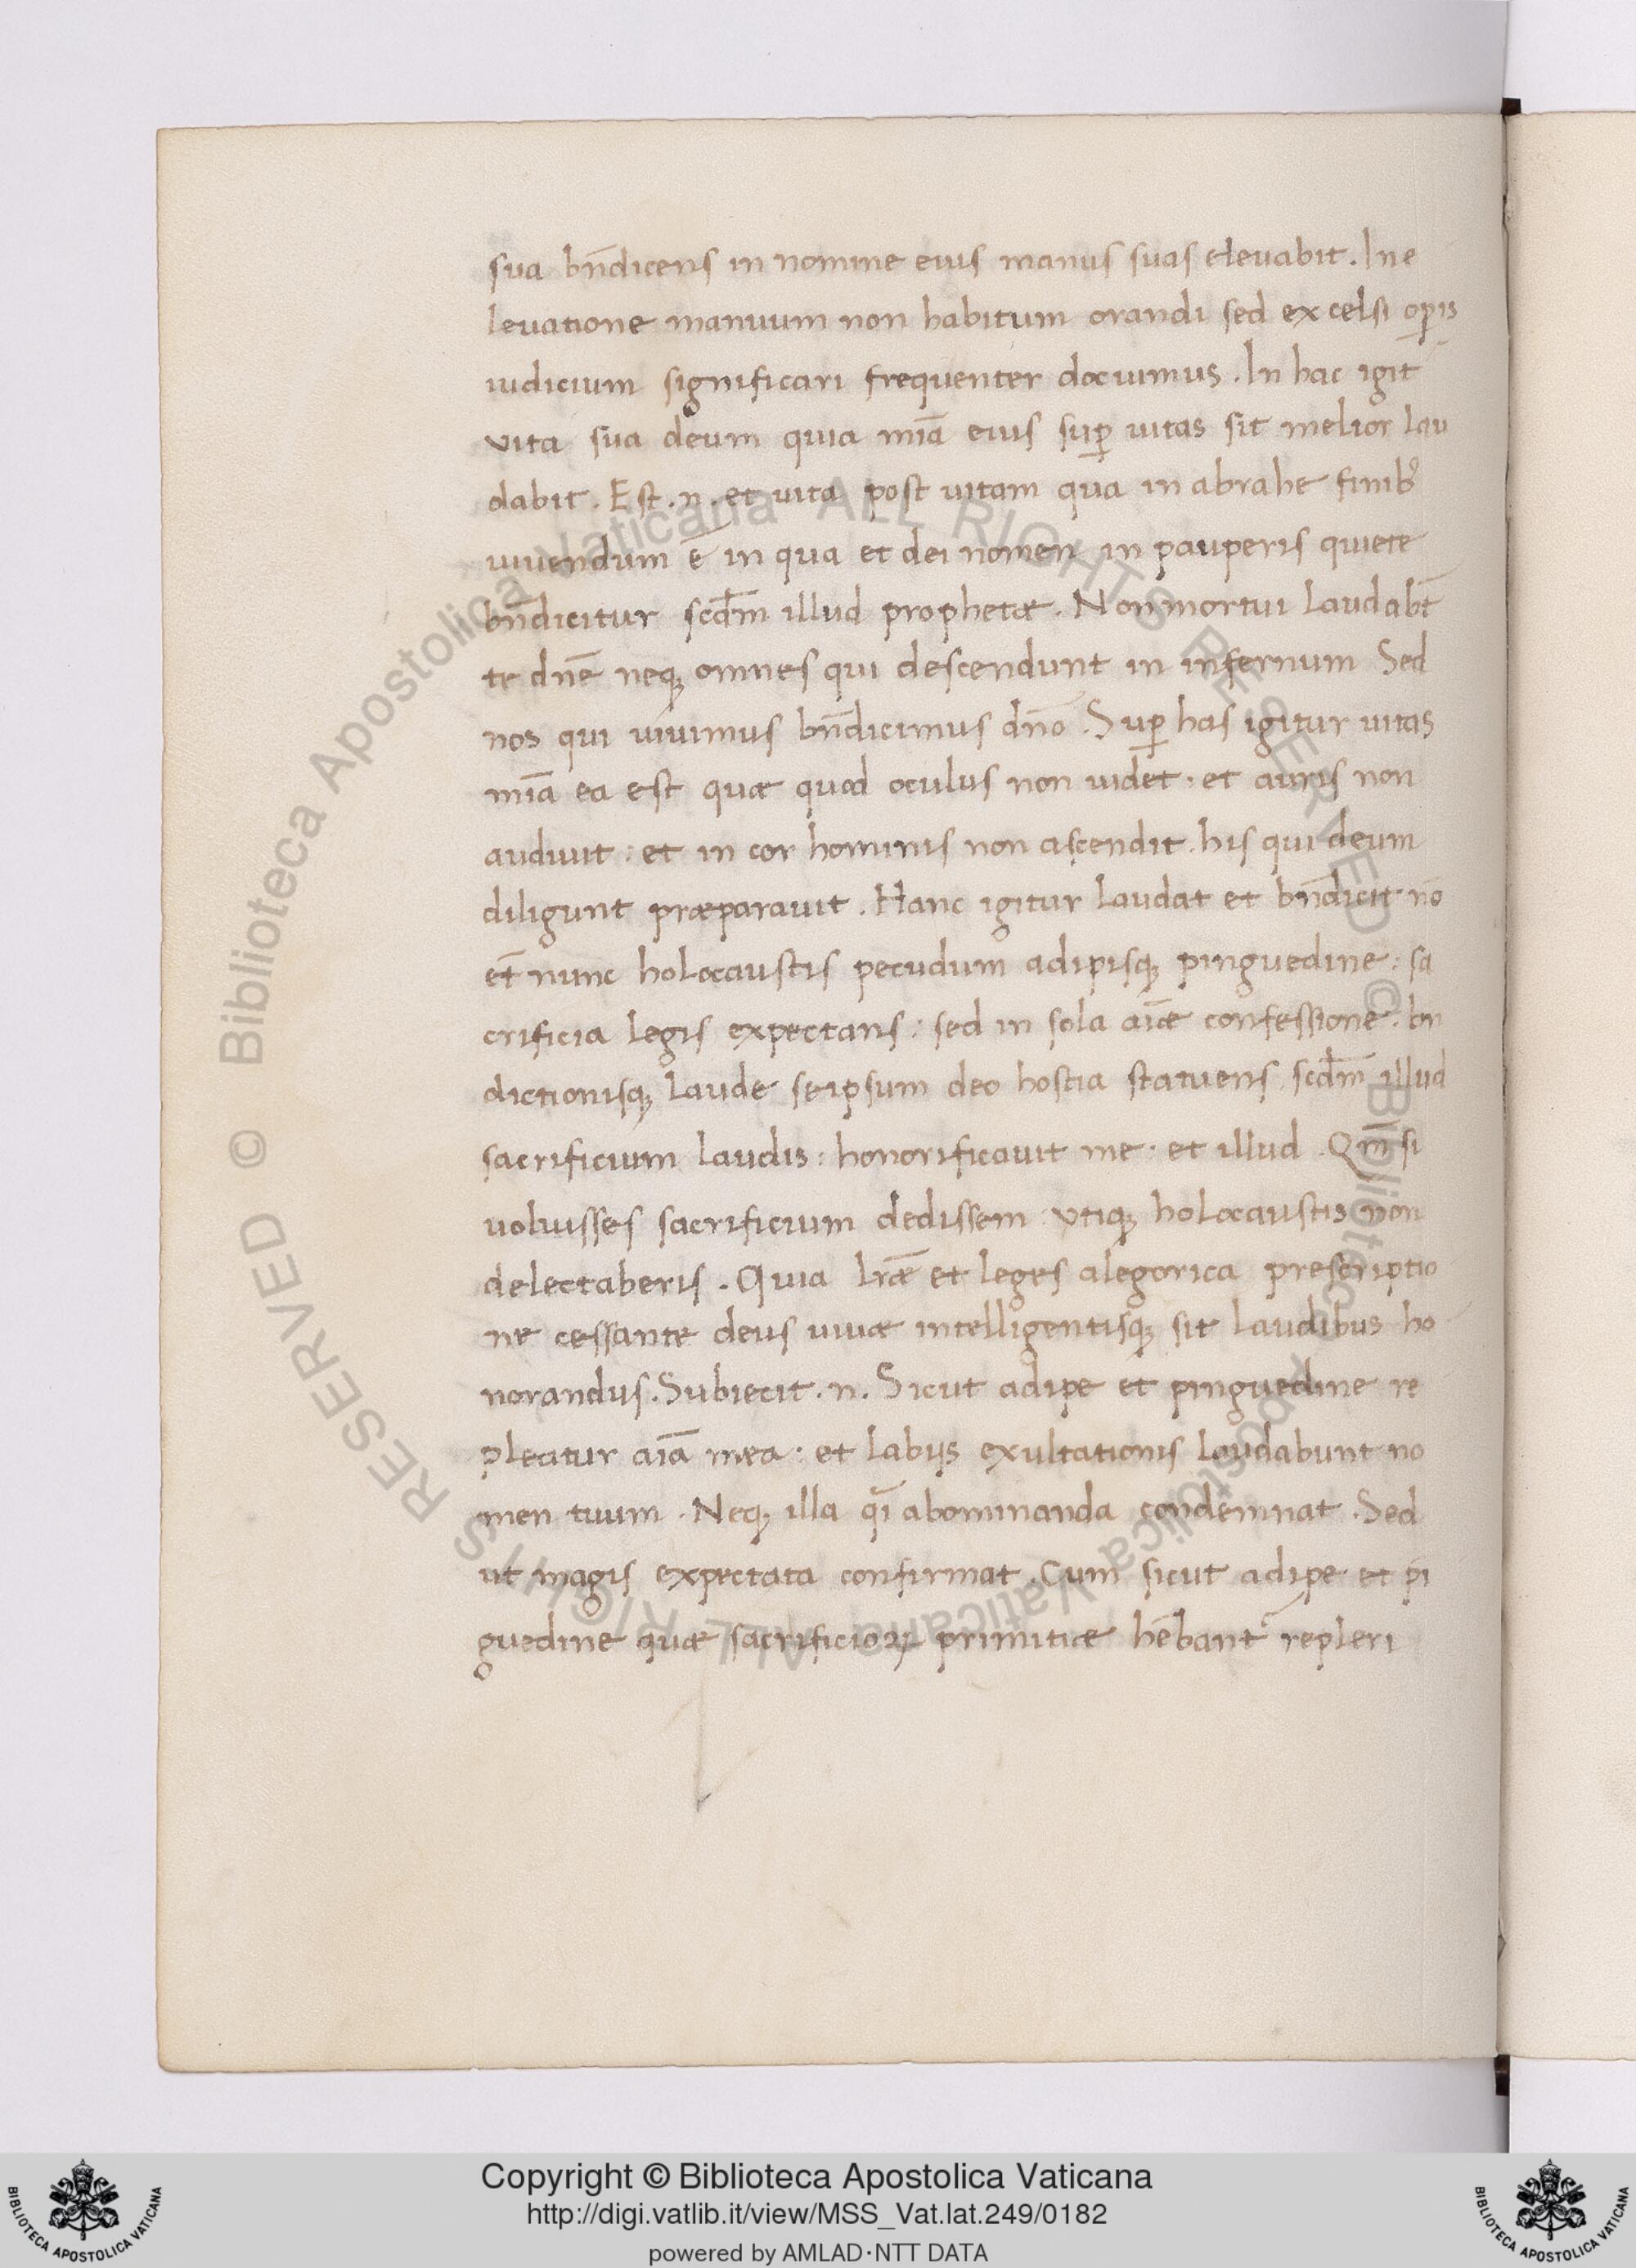 sua bn̄dicens in nomine eius manus suas eleuabit. In e
leuatione manuum non habitum orandi sed excelsi oꝑis
iudicium significari frequenter docuimus. In hac igit̄
vita sua deum quia mīa eius suꝑ uitas sit melior lau
dabit. Est. n. et uita post uitam qua in abrahe finibꝰ
uiuendum ē in qua et dei nomen in pauperis quiete
bn̄dicitur scd̄m illud prophetæ. Non mortui laudabt̄
te dn̄e neqꝫ omnes qui descendunt in infernum Sed
nos qui viuimus bn̄dicimus dn̄o. Suꝑ has igitur uitas
mīa ea est quæ quod oculus non uidet. et auris non
audiuit: et in cor hominis non ascendit. his qui deum
diligunt præparauit. Hanc igitur laudat et bn̄dicit nō
et̄ nunc holocaustis pecudum adipisqꝫ pinguedine: sa
crificia legis expectans: sed in sola aīæ confessione. bn̄
dictionisqꝫ laude seipsum deo hostia statuens scd̄m illud
sacrificium laudis: honorificauit me. et illud. Qm̄ si
uoluisses sacrificium dedissem utiqꝫ holocaustis non
delectaberis. Quia lr̄æ et leges alegorica prescriptio
ne cessante deus uiuæ intelligentisqꝫ sit laudibus ho
norandus. Subiecit. n. Sicut adipe et pinguedine re
pleatur aīa mea: et labijs exultationis laudabunt no
men tuum. Neqꝫ illa qī abominanda condemnat. Sed
ut magis expectata confirmat. Cum sicut adipe et pī
guedine quæ sacrificioꝝ primitiæ hēbant᷑ repleri
Copyright © Biblioteca Apostolica Vaticana
http://digi.vatlib.it/view/MSS_Vat.lat.249/0182
powered by AMLAD·NTT DATA
BIBLIOTECA APOSTOLICA VATICANA
BIBLIOTECA APOSTOLICA VATICANA
© Biblioteca Apostolica Vaticana ALL RIGHTS RESERVED © Biblioteca Apostolica Vaticana ALL RIGHTS RESERVED